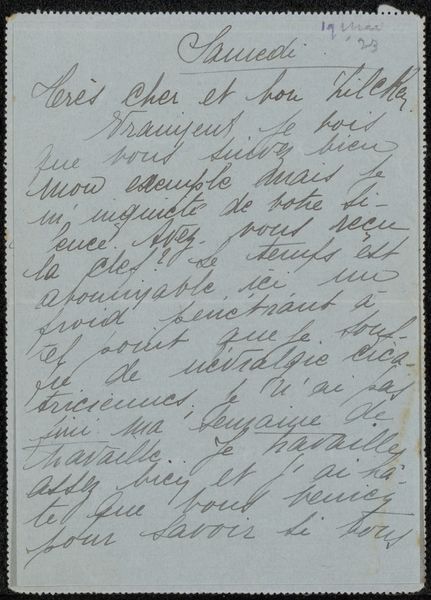 19 Mai
'23
Samedi.
Très cher et bon Zilcken
Vraiment je vois
que vous suivez bien
mon exemple mais je
m'inquiète de votre si-
lence. Avez-vous reçu
la clef? Le temps est
abominable ici un
froid pénétrant à
tel point que je souf
re de névralgie cica-
triciennes. Je n'ai pas
fini ma semaine de
travaille. Je travaille
assez bien et j'ai hâ-
te que vous veniez
pour savoir si vous